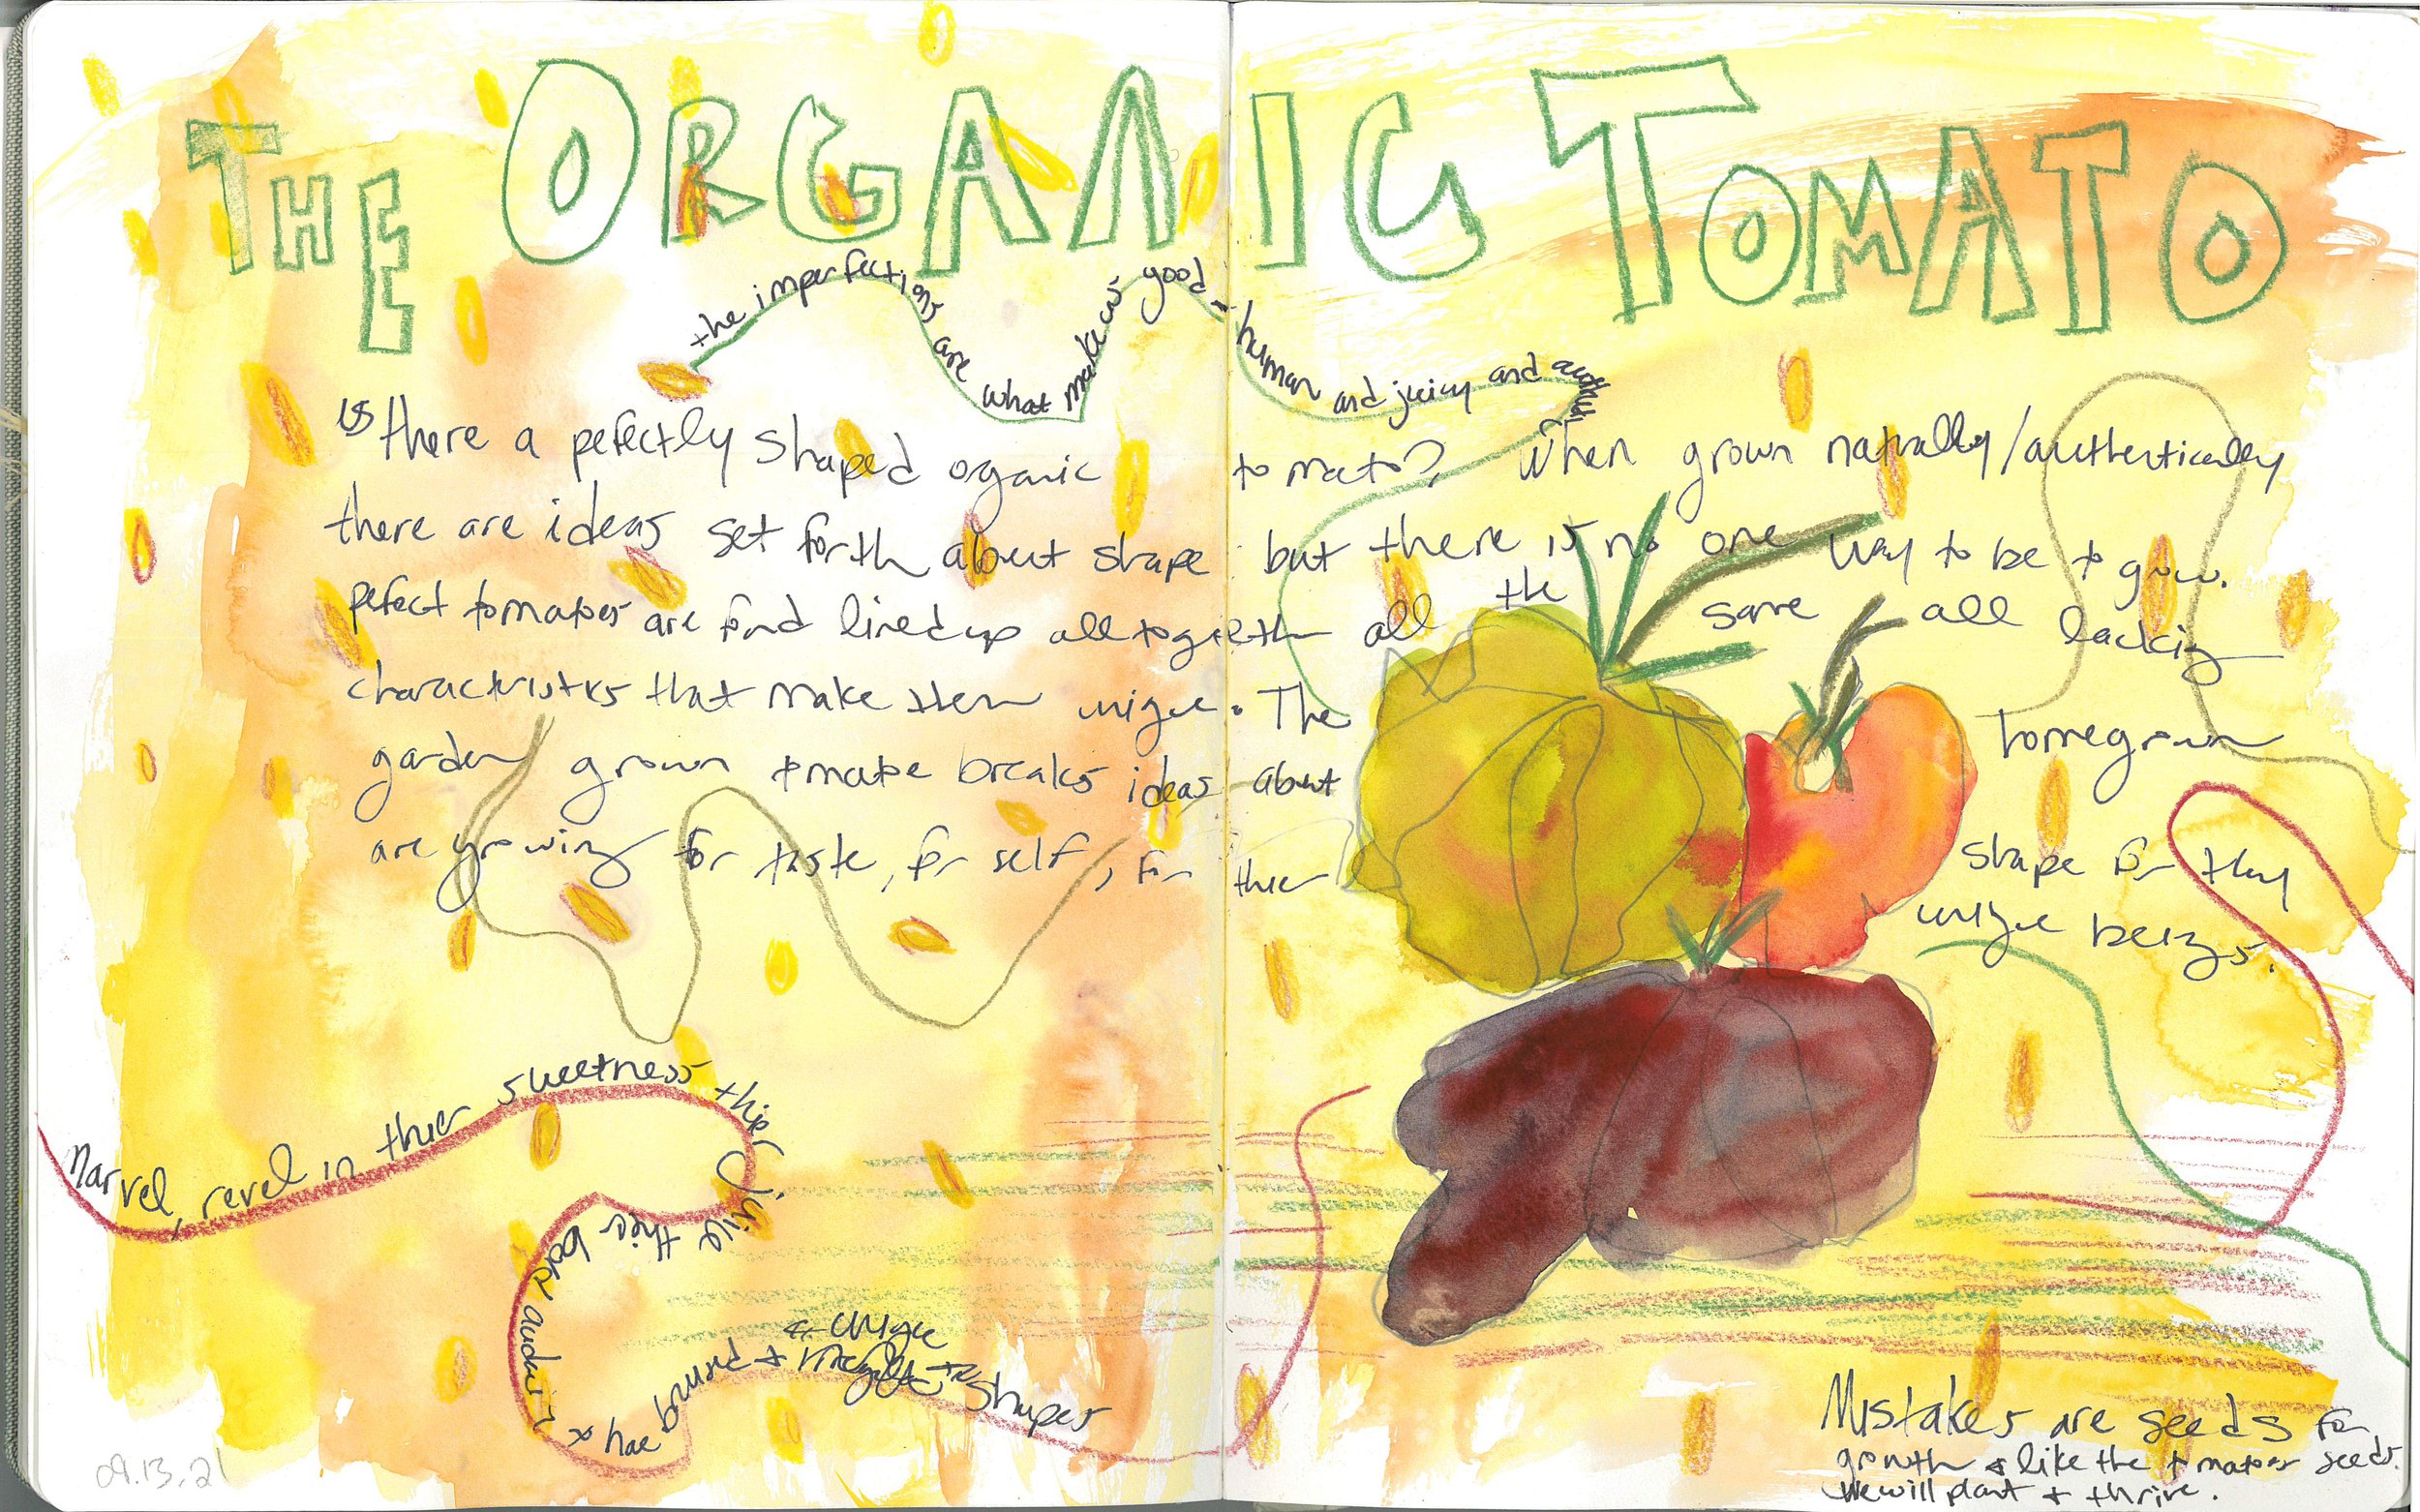 THE ORGANIC TOMATO
the imperfections are what make us good - human and juicy and
Is there a pefectly shaped organic tomato? When grown natrally/authentically
there are ideas set forth about shape but there is no one way to be to grow.
Pefect tomatoes are fond lined up all together all the same all lacking
characteristks that make them unique. The homegrown
garden grown tomatoe breaks ideas about shape for they
are growing for taste, for self, for thier unique beings.
Marvel, revel in thier sweetness thier juice thier bold audacity
& unique
brusied + shapes
Mistakes are seeds for
growth & like the tomatoes seeds.
We will plant + thrive.
09.13.21